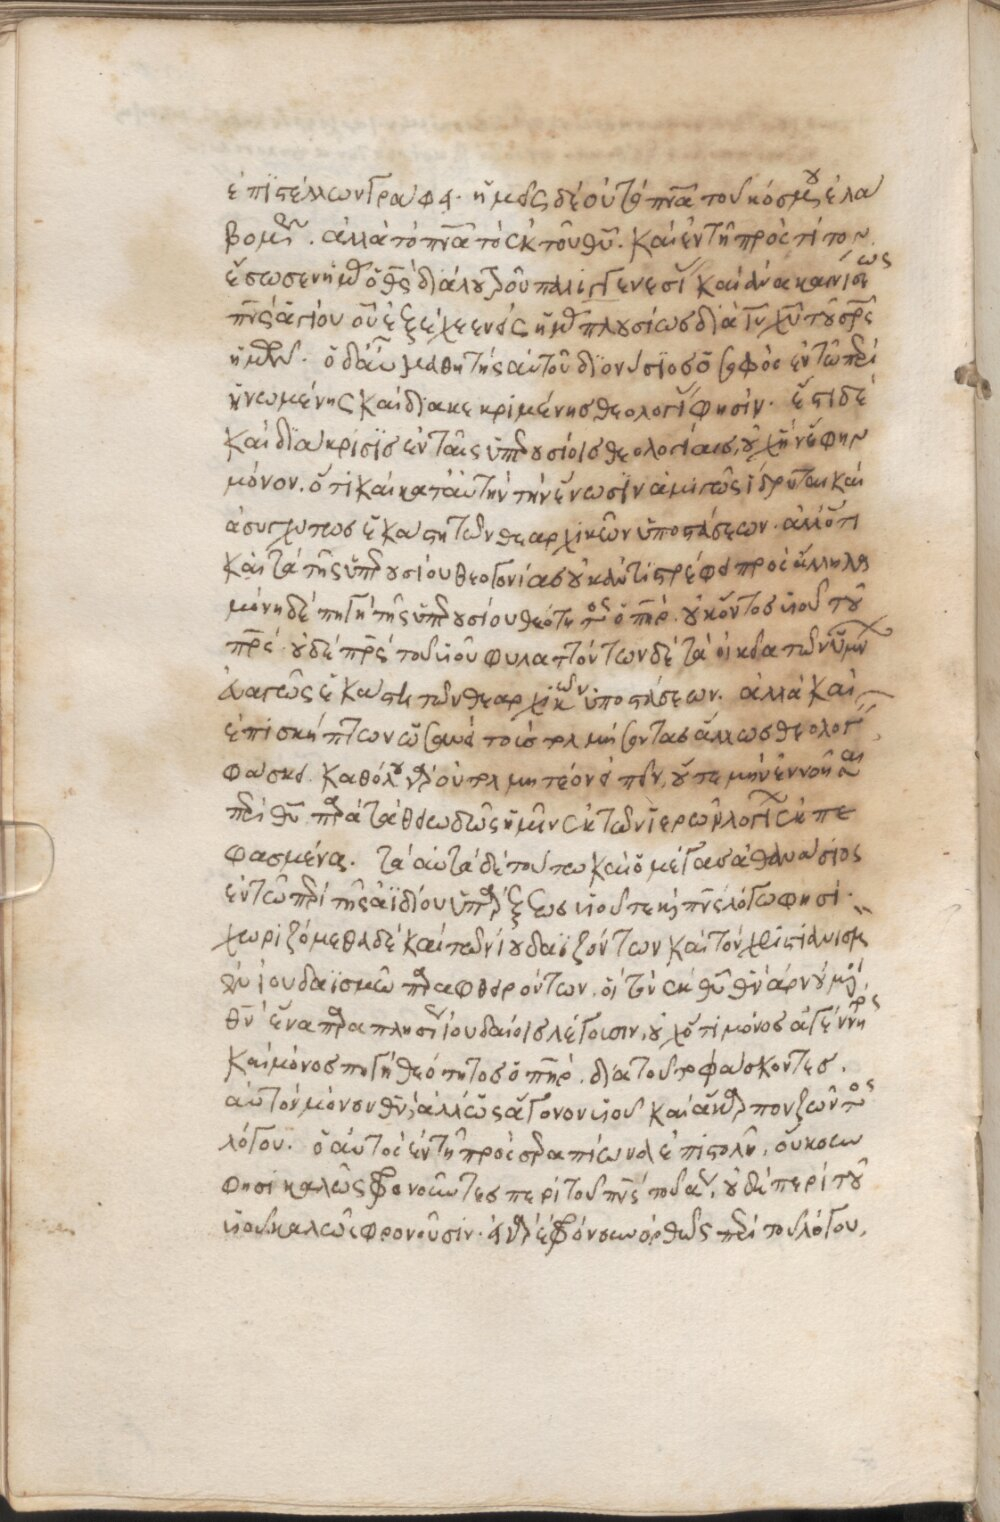 ἐπιστέλλων γράφει· ἡμεῖς δὲ οὐ τὸ πνᾶ τοῦ κόσμου ἐλά
βομεν. ἀλλὰ τὸ πνᾶ τὸ ἐκ τοῦ θυ. καὶ ἐν τῇ πρὸς τίτον
ἔσωσεν ἡμᾶς ὁ θς διὰ λουτροῦ παλιγγενεσίας καὶ ἀνακαινίσεως
πνς ἁγίου οὗ ἐξέχεεν εἰς ἡμᾶς πλουσίως διὰ ιυ χυ τοῦ σρς
ἡμῶν. ὁ δ' αὖ μαθητὴς αὐτοῦ διονύσιος ὁ σοφὸς ἐν τῷ περὶ
ἡνωμένης καὶ διακεκριμένης θεολογίας φησίν. ἔστι δὲ
καὶ διάκρισις ἐν ταῖς ὑπερουσίοις θεολογίαις, οὐχ ἣν ἔφην
μόνον. ὅτι καὶ κατ' αὐτὴν τὴν ἕνωσιν ἀμιγῶς ἵδρυται καὶ
ἀσυγχύτως ἑκάστη τῶν θεαρχικῶν ὑποστάσεων. ἀλλ' ὅτι
καὶ τὰ τῆς ὑπερουσίου θεογονίας οὐκ ἀντιστρέφει πρὸς ἄλληλα
μόνη δὲ πηγὴ τῆς ὑπερουσίου θεότητος ὁ πηρ. οὐκ ὄντος υἱοῦ τοῦ
πρς· οὐδὲ πρς τοῦ υἱοῦ φυλαττόντων δὲ τὰ οἰκεῖα τῶν ὕμνων
εὐαγῶς ἑκάστη τῶν θεαρχικῶν ὑποστάσεων. ἀλλὰ καὶ
ἐπισκήπτων ὡσαύτως τοῖς τολμήσοντας ἄλλως θεολογεῖν
φάσκει. καθόλου γὰρ οὐ τολμητέον εἰπεῖν, οὔτε μὴν ἐννοῆσαι
περὶ θυ παρὰ τὰ θειωδῶς ἡμῖν ἐκ τῶν ἱερῶν λογίων ἐκπε
φασμένα. τὰ αὐτὰ δὲ τούτω καὶ ὁ μέγας ἀθανάσιος
ἐν τῷ περὶ τῆς ἀϊδίου ὑπάρξεως υἱοῦ τε καὶ πνς λόγω φησί·
χωριζόμεθα δὲ καὶ τῶν ἰουδαϊζόντων καὶ τὸν χριστιανισμὸν
ἐν ἰουδαϊσμῷ παραφθειρόντων. οἳ τὸν ἐκ θυ θν ἀρνούμενοι,
θν ἕνα παραπλησίως ἰουδαίοις λέγουσιν, οὐχ ὅτι μόνος ἀγέννητος
καὶ μόνος πηγὴ θεότητος ὁ πηρ. διὰ τοῦτο φάσκοντες,
αὐτὸν μόνον θν, ἀλλ' ὡς ἄγονον υἱοῦ καὶ ἄκαρπον ζῶντος
λόγου. ὁ αὐτὸς ἐν τῇ πρὸς σεραπίωνα ἐπιστολῇ, οὔκουν
φησὶ καλῶς φρονοῦντες περὶ τοῦ πνς τοῦ ἁγίου, οὐδὲ περὶ τοῦ
υἱοῦ καλῶς φρονοῦσιν. εἰ γὰρ ἐφρόνουν ὀρθῶς περὶ τοῦ λόγου,